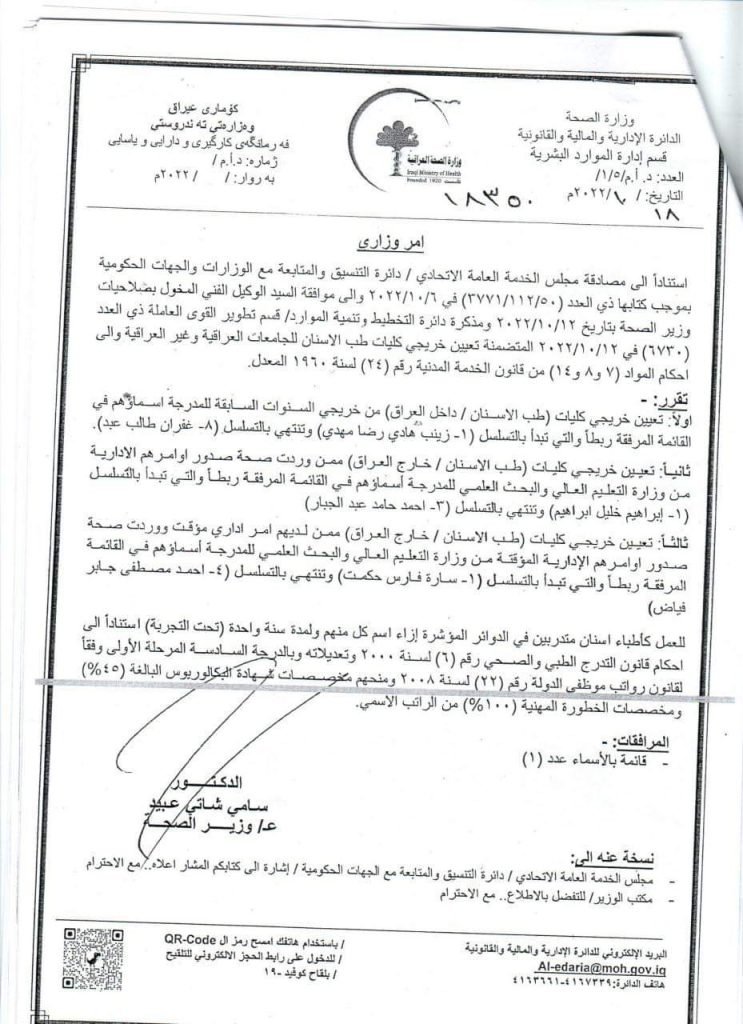 وزارة الصحة
الدائرة الإدارية والمالية والقانونية
قسم إدارة الموارد البشرية
العدد: د. أ.م/٥/١/
التاريخ: / ١٠/ ٢٠٢٢م
١٨
١٨٣٥٠
وزارة الصحة العراقية
Iraqi Ministry of Health
Founded 1920 تأسست
كۆماری عیراق
وەزارەتی تە ندروستی
فە رمانگەی کارگێری و دارایی و یاسایی
ژمارە: د.أ.م /
بە روار: / / ٢٠٢٢م
امر وزاري
استناداً الى مصادقة مجلس الخدمة العامة الاتحادي / دائرة التنسيق والمتابعة مع الوزارات والجهات الحكومية
بموجب كتابها ذي العدد (٣٧٧١/١١٢/٥٠) في ٢٠٢٢/١٠/٦ والى موافقة السيد الوكيل الفني المخول بصلاحيات
وزير الصحة بتاريخ ٢٠٢٢/١٠/١٢ ومذكرة دائرة التخطيط وتنمية الموارد/ قسم تطوير القوى العاملة ذي العدد
(٦٧٣٠) في ٢٠٢٢/١٠/١٢ المتضمنة تعيين خريجي كليات طب الاسنان للجامعات العراقية وغير العراقية والى
احكام المواد (٧ و٨ و١٤) من قانون الخدمة المدنية رقم (٢٤) لسنة ١٩٦٠ المعدل.
تقرر: -
اولاً: تعيين خريجي كليات (طب الاسنان / داخل العراق) من خريجي السنوات السابقة للمدرجة اسماؤهم في
القائمة المرفقة ربطاً والتي تبدأ بالتسلسل (١- زينب هادي رضا مهدي) وتنتهي بالتسلسل (٨- غفران طالب عبد).
ثانياً: تعيين خريجي كليات (طب الاسنان / خارج العراق) ممن وردت صحة صدور اوامرهم الادارية
من وزارة التعليم العالي والبحث العلمي للمدرجة أسماؤهم في القائمة المرفقة ربطاً والتي تبدأ بالتسلسل
(١- إبراهيم خليل ابراهيم) وتنتهي بالتسلسل (٣- احمد حامد عبد الجبار)
ثالثاً: تعيين خريجي كليات (طب الاسنان / خارج العراق) ممن لديهم امر اداري مؤقت ووردت صحة
صدور اوامرهم الإدارية المؤقتة من وزارة التعليم العالي والبحث العلمي للمدرجة أسماؤهم في القائمة
المرفقة ربطاً والتي تبدأ بالتسلسل (١- سارة فارس حكمت) وتنتهي بالتسلسل (٤- احمد مصطفى جابر
فياض)
للعمل كأطباء اسنان متدربين في الدوائر المؤشرة إزاء اسم كل منهم ولمدة سنة واحدة (تحت التجربة) استناداً الى
احكام قانون التدرج الطبي والصحي رقم (٦) لسنة ٢٠٠٠ وتعديلاته وبالدرجة السادسة المرحلة الأولى وفقاً
لقانون رواتب موظفي الدولة رقم (٢٢) لسنة ٢٠٠٨ ومنحهم مخصصات شهادة البكالوريوس البالغة (٤٥%)
ومخصصات الخطورة المهنية (١٠٠%) من الراتب الاسمي.
المرافقات: -
- قائمة بالأسماء عدد (١)
الدكتور
سامي شاتي عبيد
ع/ وزير الصحة
نسخة عنه الى:
- مجلس الخدمة العامة الاتحادي / دائرة التنسيق والمتابعة مع الجهات الحكومية / إشارة الى كتابكم المشار اعلاه.. مع الاحترام
- مكتب الوزير/ للتفضل بالاطلاع.. مع الاحترام
البريد الإلكتروني للدائرة الإدارية والمالية والقانونية
Al-edaria@moh.gov.iq
هاتف الدائرة:٤١٦٧٣٣٩-٤١٦٣٦٦١
/ باستخدام هاتفك امسح رمز ال QR-Code
/ للدخول على رابط الحجز الالكتروني للتلقيح
/ بلقاح كوفيد -١٩